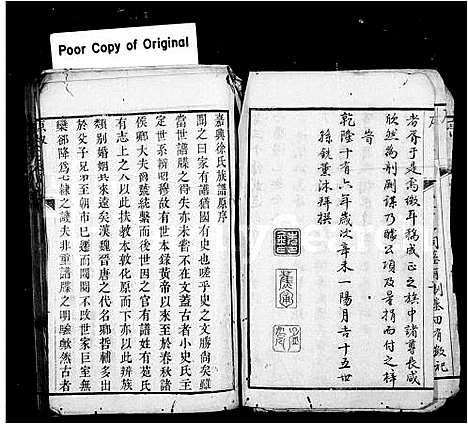 Poor Copy of Original
者胥于是焉徵耳稿成正之族中諸尊長咸
欣然為剞劂謀乃醵公項及量捐而付之梓
旹
乾隆十有六年歲次辛未一陽月吉十五世
孫銑薰沐拜撰
嘉興徐氏族譜原序
聞之曰家有譜猶國有史也嗟乎史之文勝尙矣雖
當世譜牒之得失亦未嘗不在文蓋古者小史氏主
定世系辨昭穆故有世本錄黃帝以來至於春秋諸
侯卿大夫名號統繫而後世因之官有譜姓有苑氏
有志上之人以此扶教本敦化原而下亦以此辨族
類別婚姻其來遠矣漢魏晉唐之代著姓相輔多出
於父子兄弟至朝市已遷而閥閱不改世家巨室無
欒郤降為皂隸之譏夫非重譜牒之明驗歟然古者